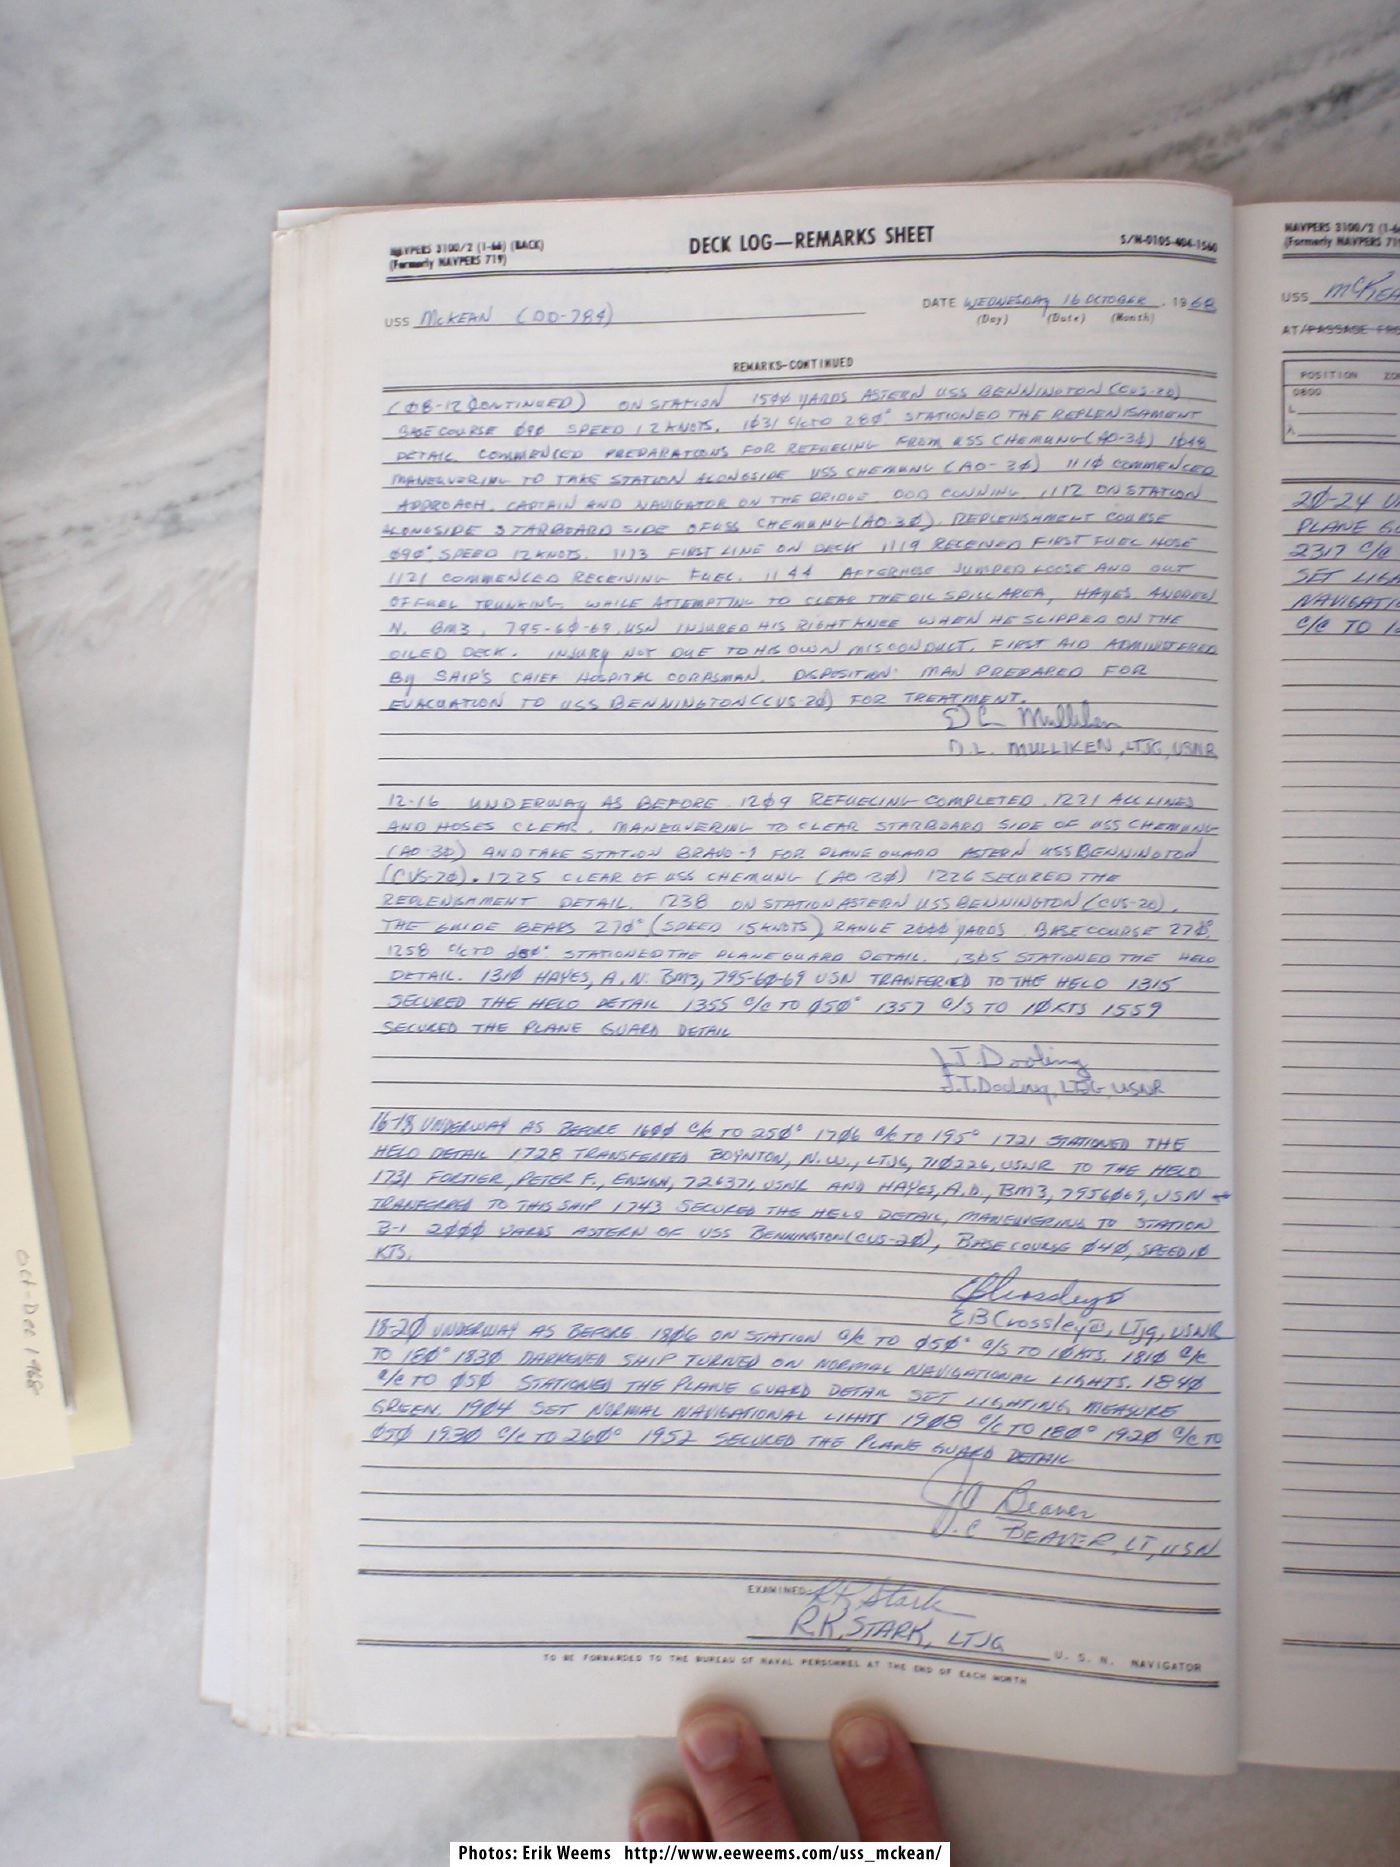 NAVPERS 3100/2 (1-66) (BACK)
(Formerly NAVPERS 719)
DECK LOG—REMARKS SHEET
S/N-0105-404-1560
USS McKEAN (DD-784)
DATE WEDNESDAY 16 OCTOBER, 1968
(Day) (Date) (Month)
REMARKS-CONTINUED
(Ø8-12 CONTINUED) ON STATION 15ØØ YARDS ASTERN USS BENNINGTON (CVS-20)
BASE COURSE Ø9Ø SPEED 12 KNOTS. 1Ø31 C/C TO 28Ø° STATIONED THE REPLENISHMENT
DETAIL. COMMENCED PREPARATIONS FOR REFUELING FROM USS CHEMUNG (AO-3Ø) 1048
MANEUVERING TO TAKE STATION ALONGSIDE USS CHEMUNG (AO-3Ø) 111Ø COMMENCED
APPROACH, CAPTAIN AND NAVIGATOR ON THE BRIDGE OOD CONNING. 1112 ON STATION
ALONGSIDE STARBOARD SIDE OF USS CHEMUNG (AO-3Ø). REPLENISHMENT COURSE
Ø9Ø° SPEED 12 KNOTS. 1113 FIRST LINE ON DECK 1119 RECEIVED FIRST FUEL HOSE
1121 COMMENCED RECEIVING FUEL. 1144 AFTER HOSE JUMPED LOOSE AND OUT
OF FUEL TRUNKING. WHILE ATTEMPTING TO CLEAR THE OIL SPILL AREA, HAYES, ANDREW
N. BM3, 795-6Ø-69, USN INJURED HIS RIGHT KNEE WHEN HE SLIPPED ON THE
OILED DECK. INJURY NOT DUE TO HIS OWN MISCONDUCT. FIRST AID ADMINISTERED
BY SHIP'S CHIEF HOSPITAL CORPSMAN. DISPOSITION: MAN PREPARED FOR
EVACUATION TO USS BENNINGTON (CVS-2Ø) FOR TREATMENT.
D L Mulliken
D.L. MULLIKEN, LTJG, USNR
12-16 UNDERWAY AS BEFORE. 12Ø9 REFUELING COMPLETED. 1221 ALL LINES
AND HOSES CLEAR. MANEUVERING TO CLEAR STARBOARD SIDE OF USS CHEMUNG
(AO-3Ø) AND TAKE STATION BRAVO-1 FOR PLANE GUARD ASTERN USS BENNINGTON
(CVS-2Ø). 1225 CLEAR OF USS CHEMUNG (AO 3Ø) 1226 SECURED THE
REPLENISHMENT DETAIL. 1238 ON STATION ASTERN USS BENNINGTON (CVS-20).
THE GUIDE BEARS 27Ø° (SPEED 15 KNOTS) RANGE 2ØØØ YARDS. BASE COURSE 27Ø°.
1258 C/C TO STATIONED THE PLANE GUARD DETAIL. 13Ø5 STATIONED THE HELO
DETAIL. 131Ø HAYES, A.N. BM3, 795-6Ø-69 USN TRANFERED TO THE HELO 1315
SECURED THE HELO DETAIL 1355 C/C TO Ø5Ø° 1357 C/S TO 1Ø KTS 1559
SECURED THE PLANE GUARD DETAIL
J.T. Dooling
J.T. Dooling, LTJG, USNR
16-18 UNDERWAY AS BEFORE 16ØØ C/C TO 25Ø° 17Ø6 C/C TO 195° 1721 STATIONED THE
HELO DETAIL 1728 TRANSFERRED BOYNTON, N.W., LTJG, 71Ø226, USNR TO THE HELO
1731 FORTIER, PETER F., ENSIGN, 726371, USNR AND HAYES, A.D., BM3, 7956Ø69, USN
TRANFERRED TO THIS SHIP 1743 SECURED THE HELO DETAIL, MANEUVERING TO STATION
B-1 2ØØØ YARDS ASTERN OF USS BENNINGTON (CVS-2Ø), BASE COURSE Ø4Ø, SPEED 1Ø
KTS.
EB Crossley
EB Crossley, LTjg, USNR
18-2Ø UNDERWAY AS BEFORE. 18Ø6 ON STATION C/C TO Ø5Ø° C/S TO 1Ø KTS. 181Ø C/C
TO 18Ø° 183Ø DARKENED SHIP TURNED ON NORMAL NAVIGATIONAL LIGHTS. 184Ø
C/C TO Ø5Ø STATIONED THE PLANE GUARD DETAIL SET LIGHTING MEASURE
GREEN. 19Ø4 SET NORMAL NAVIGATIONAL LIGHTS 19Ø8 C/C TO 18Ø° 192Ø C/C TO
Ø5Ø 193Ø C/C TO 26Ø° 1952 SECURED THE PLANE GUARD DETAIL
J C Beaver
J.C BEAVER, LT, USN
EXAMINED R K Stark
R.K. STARK, LTJG U. S. N. NAVIGATOR
TO BE FORWARDED TO THE BUREAU OF NAVAL PERSONNEL AT THE END OF EACH MONTH
NAVPERS 3100/2 (1-6
(Formerly NAVPERS 71
USS McKEA
AT/PASSAGE FRO
POSITION ZO
0800
L
λ
20-24 U
PLANE G
2317 C/C
SET LIGH
NAVIGATIO
C/C TO 1
Oct-Dec 1968
Photos: Erik Weems http://www.eeweems.com/uss_mckean/